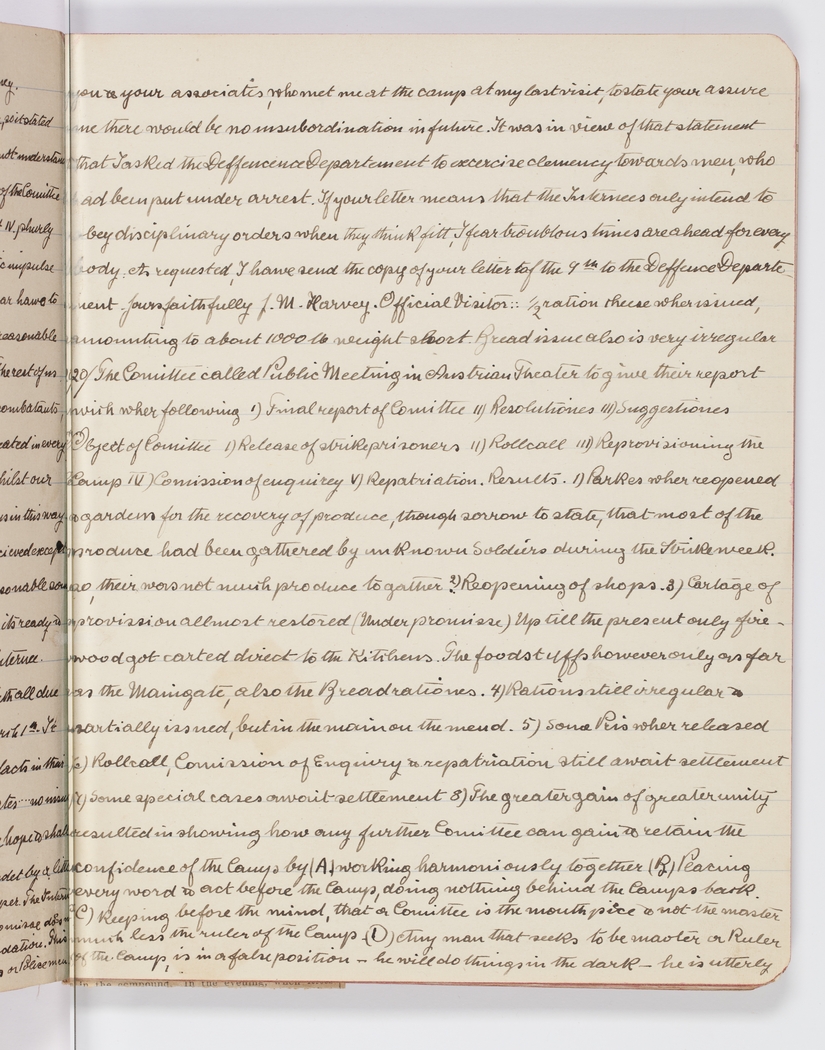 ey.
you & your associates, who met me at the camp at my last visit, to state your assure
me there would be no insubordination in future. It was in view of that statement
that I asked the Deffencence Departement to excercise clemency towards men, who
ad been put under arrest. If your letter means that the Internees only intend to
obey disciplinary orders when they think fitt, I fear troublous times are ahead for every
body. As requested, I have send the copy of your letter tof the 9th to the Deffence Departe-
ment. Yours faithfully J. M. Harvey. Official Visitor:: 1/2 ration cheese wher issued,
amounting to about 1000 lb weight short. Bread issue also is very irregular
20/ The Comittee called Public Meeting in Austrian Theater to give their report
wich wher following I) Final report of Comittee II) Resolutiones III) Suggestiones
Object of Comittee I) Release of strikeprisoners II) Rollcall III) Reprovisioning the
Camp IV) Comission of enquirey V) Repatriation. Results. 1) Parkes wher reopened
& gardens for the recovery of produce, though sorrow to state, that most of the
produce had been gathered by unknown Soldiers during the Strikeweek.
so, their was not much produce to gather. 2) Reopening of shops. 3) Cartage of
provission allmost restored (Under promisse) Up till the present only fire-
wood got carted direct to the Kitchens. The foodstuffs however only as far
as the Maingate, also the Breadrationes. 4) Rations still irregular &
partially issued, but in the main on the mend. 5) Some Pris wher released
6) Rollcall, Comission of Enquiry & repatriation still await settlement
7) Some special cases await settlement 8) The greater gain of greater unity
resulted in showing how any further Comittee can gain & retain the
confidence of the Camp by (A) working harmoniously together (B) Placing
every word & act before the Camp, doing nothing behind the Camps back.
C) Keeping before the mind, that a Comittee is the mouthpice & not the master
much less the ruler of the Camp. (D) Any man that seeks to be master or Ruler
of the Camp, is in a false position – he will do things in the dark – he is utterly
in the compound. In the evening, when